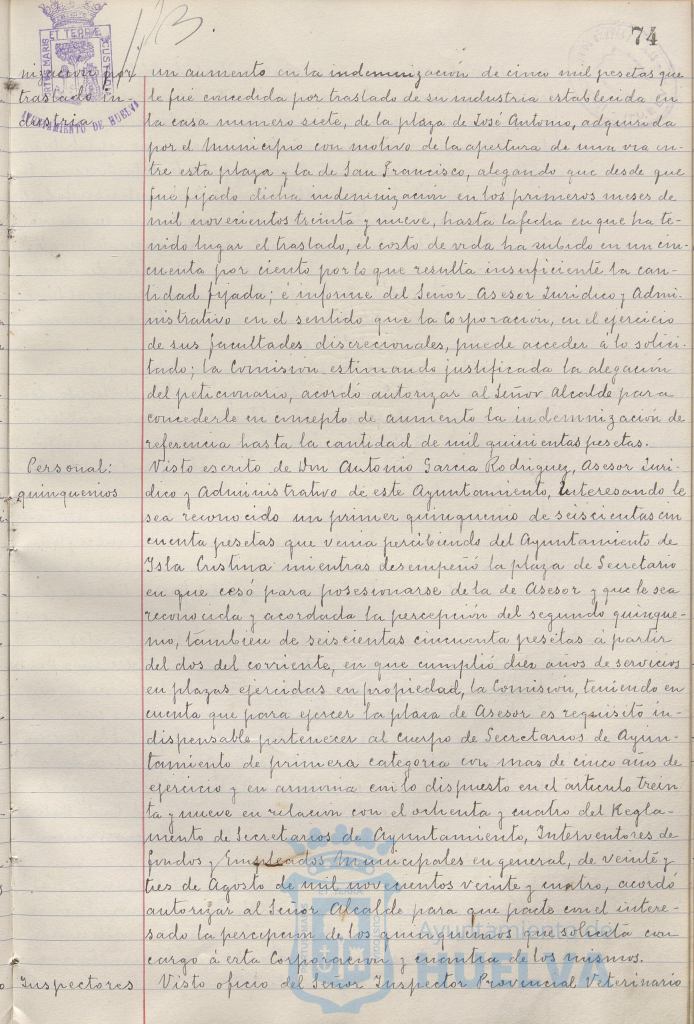 74
nización por
traslado in-
dustria
AYUNTAMIENTO DE HUELVA
un aumento en la indemnización de cinco mil pesetas que
le fué concedida por traslado de su industria establecida en
la casa numero siete, de la plaza de José Antonio, adquirida
por el Municipio con motivo de la apertura de una via en-
tre esta plaza y la de San Francisco, alegando que desde que
fué fijado dicha indeminización en los primeros meses de
mil novecientos treinta y nueve, hasta la fecha en que ha te-
nido lugar el traslado, el costo de vida ha subido en un cin-
cuenta por ciento por lo que resulta insuficiente la can-
tidad fijada; é informe del Señor Asesor Juridico y Admi-
nistrativo en el sentido que la Corporación, en el ejercicio
de sus facultades discrecionales, puede acceder á lo solici-
tado; la Comisión estimando justificada la alegación
del peticionario, acordó autorizar al Señor Alcalde para
concederle en concepto de aumento la indemnización de
referencia hasta la cantidad de mil quinientas pesetas.
Personal:
quinquenios
Visto escrito de Don Antonio Garcia Rodriguez, Asesor Juri-
dico y Administrativo de este Ayuntamiento, interesando le
sea reconocido un primer quinquenio de seiscientas cin
cuenta pesetas que venia percibiendo del Ayuntamiento de
Isla Cristina mientras desempeñó la plaza de Secretario
en que cesó para posesionarse de la de Asesor y que le sea
reconocida y acordada la percepción del segundo quinque-
nio, tambien de seiscientas cincuenta pesetas á partir
del dos del corriente, en que cumplió diez años de servicios
en plazas ejercidas en propiedad, la Comisión, teniendo en
cuenta que para ejercer la plaza de Asesor es requisito in-
dispensable pertenecer al cuerpo de Secretarios de Ayun-
tamiento de primera categoria con mas de cinco años de
ejercicio y en armonia con lo dispuesto en el articulo trein
ta y nueve en relación con el ochenta y cuatro del Regla-
mento de Secretarios de Ayuntamiento, Interventores de
fondos y Empleados Municipales en general, de veinte y
tres de Agosto de mil novecientos veinte y cuatro, acordó
autorizar al Señor Alcalde para que pacte con el intere-
sado la percepción de los quinquenios que solicita con
cargo á esta Corporación y cuantia de los mismos.
Ayuntamiento de
HUELVA
Inspectores
Visto oficio del Señor Inspector Provincial Veterinario